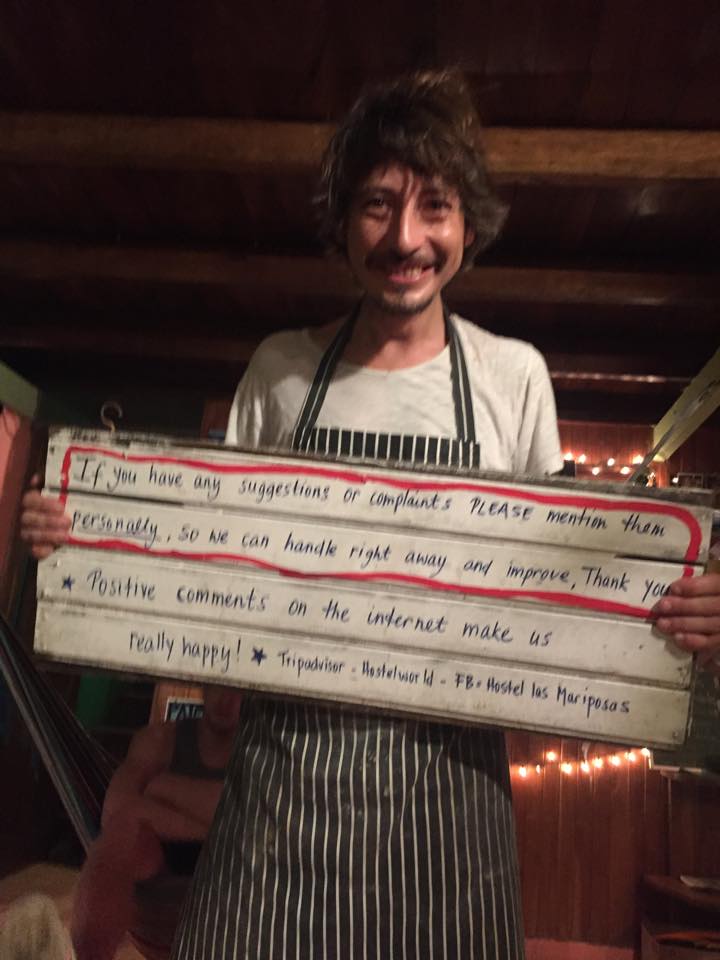 If you have any suggestions or complaints PLEASE mention them
personally, so we can handle right away and improve, Thank you
* Positive comments on the internet make us
really happy! * Tripadvisor - Hostelworld - FB= Hostel las Mariposas